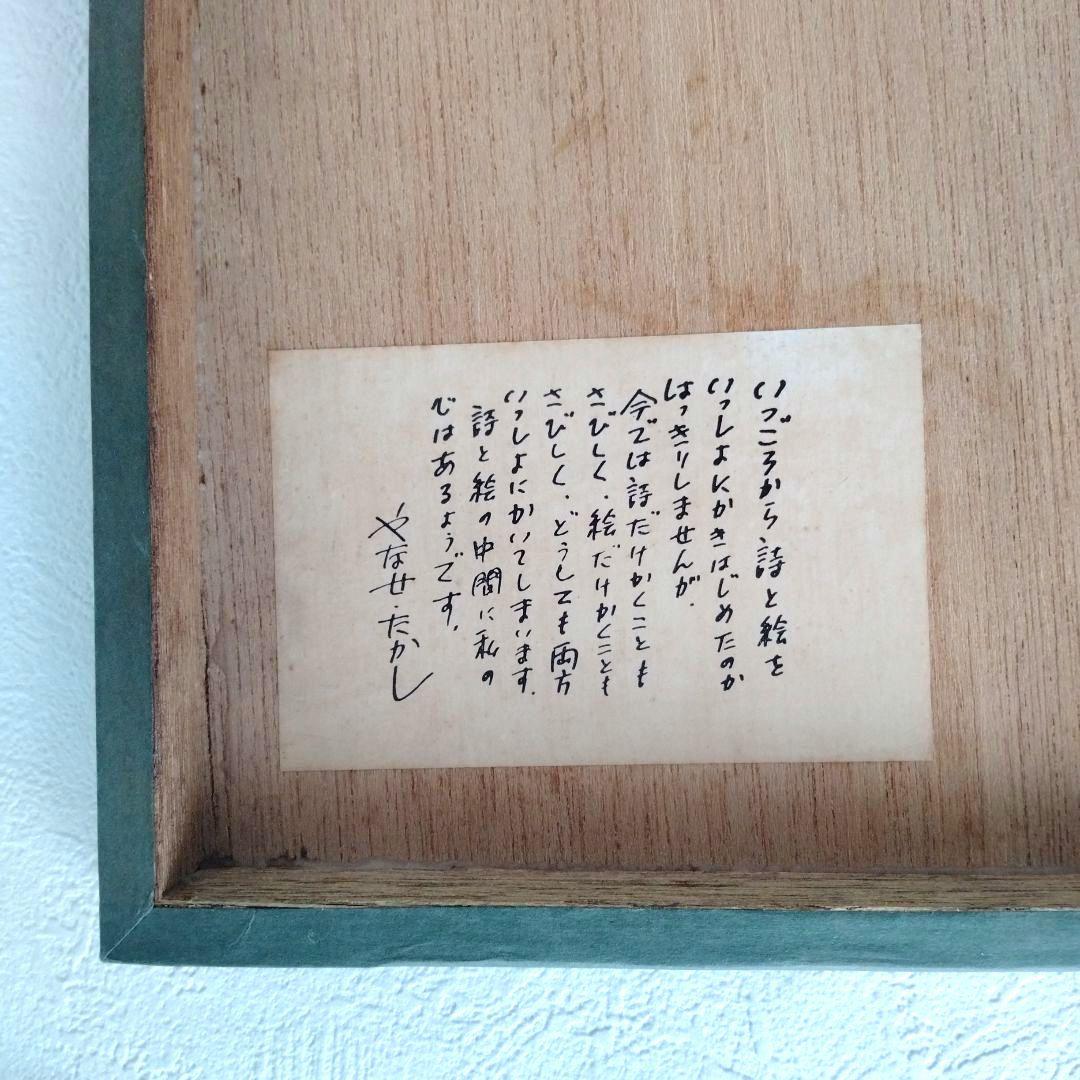 いつごろから詩と絵を
いっしょにかきはじめたのか
はっきりしませんが.
今では詩だけかくことも
さびしく.絵だけかくことも
さびしく.どうしても両方
いっしょにかいてしまいます.
詩と絵の中間に私の
心はあるようです.
やなせ・たかし